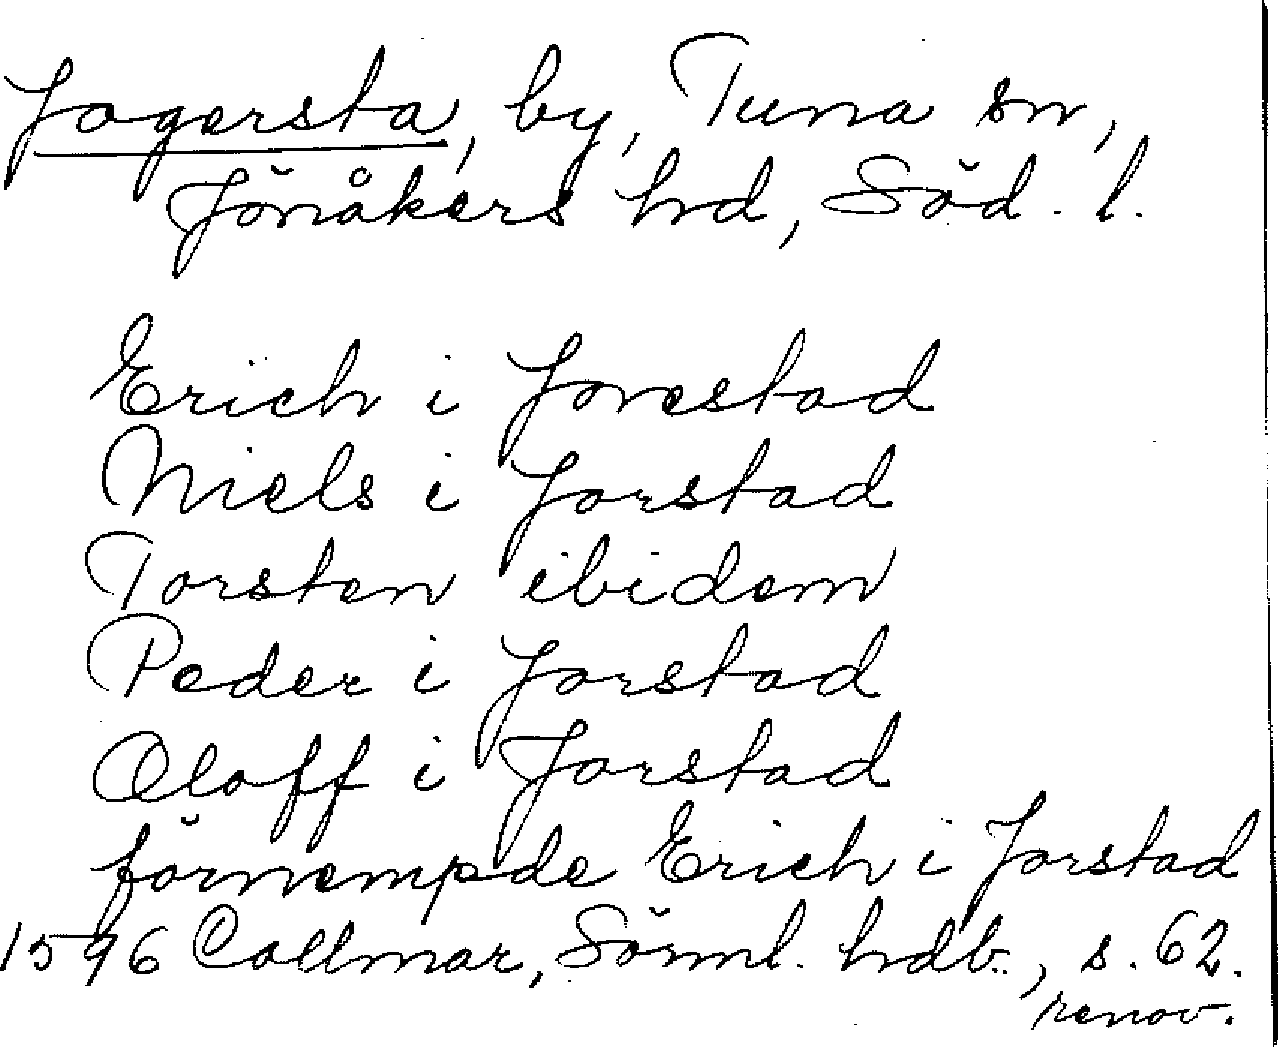 Jogersta, by, Tuna sn,
Jönåkers hd, Söd. l.
Erich i Jorestad
Niels i Jorstad
Torsten ibidem
Peder i Jorstad
Oloff i Jorstad
förnempde Erich i Jorstad
1596 Collmar, Sörml. hdb., s. 62.
renov.